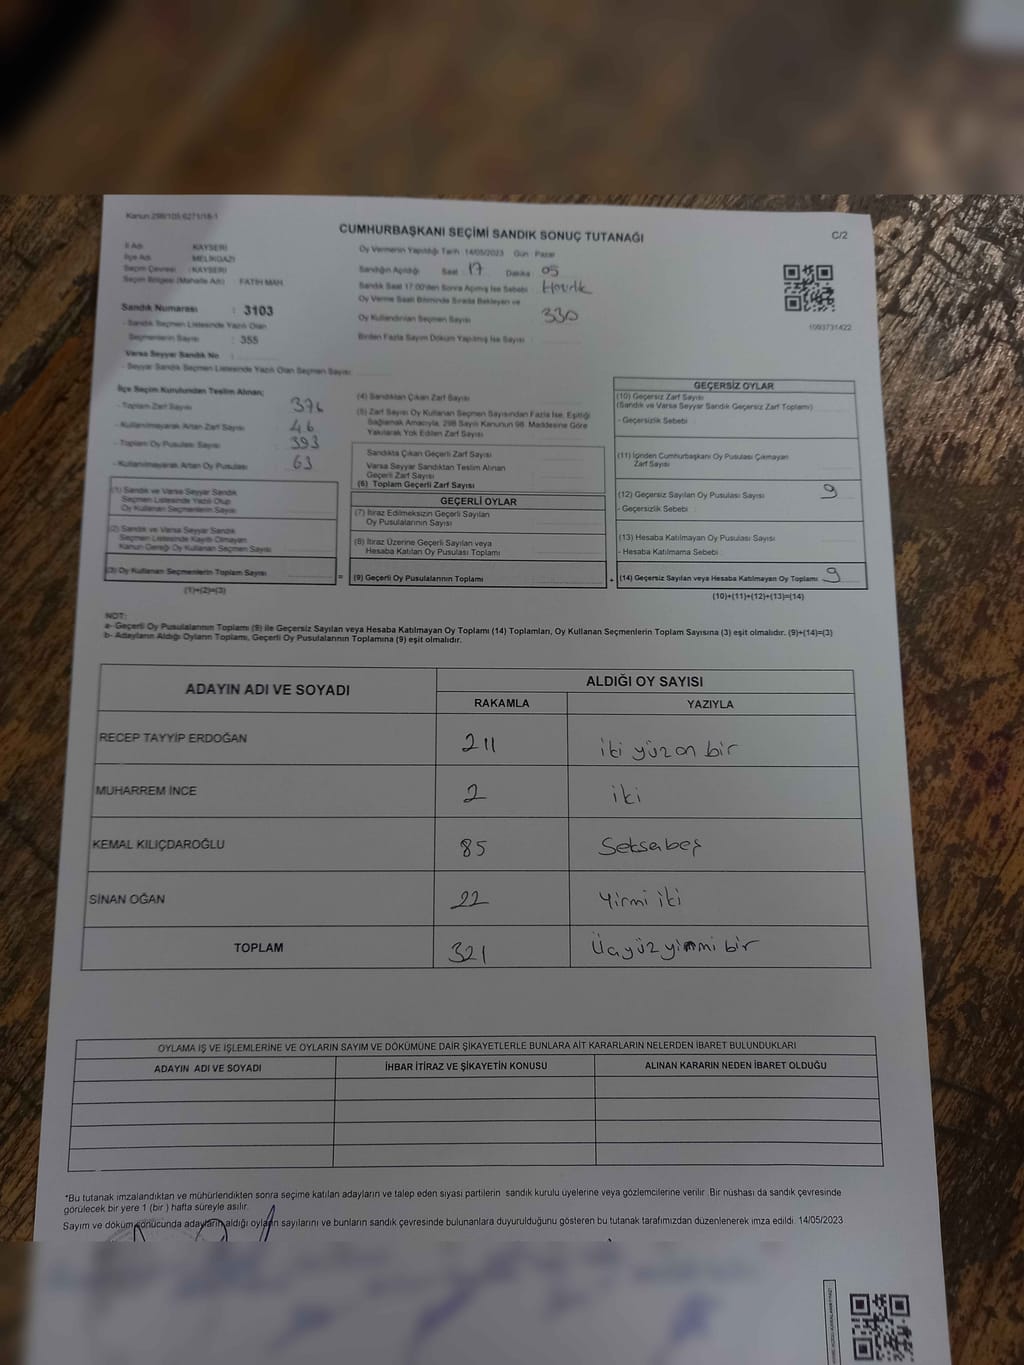 Kanun 298/105:6271/18-1
CUMHURBAŞKANI SEÇİMİ SANDIK SONUÇ TUTANAĞI
C/2
İl Adı : KAYSERİ
İlçe Adı : MELİKGAZİ
Seçim Çevresi : KAYSERİ
Seçim Bölgesi (Mahalle Adı) : FATİH MAH.
Sandık Numarası : 3103
- Sandık Seçmen Listesinde Yazılı Olan
Seçmenlerin Sayısı : 355
Varsa Seyyar Sandık No :
- Seyyar Sandık Seçmen Listesinde Yazılı Olan Seçmen Sayısı
Oy Vermenin Yapıldığı Tarih : 14/05/2023 Gün : Pazar
Sandığın Açıldığı Saat 17 Dakika 05
Sandık Saat 17:00'den Sonra Açılmış İse Sebebi
Oy Verme Saati Bitiminde Sırada Bekleyen ve
Oy Kullandırılan Seçmen Sayısı 330
Birden Fazla Sayım Döküm Yapılmış İse Sayısı
1093731422
İlçe Seçim Kurulundan Teslim Alınan;
- Toplam Zarf Sayısı : 376
- Kullanılmayarak Artan Zarf Sayısı : 46
- Toplam Oy Pusulası Sayısı : 393
- Kullanılmayarak Artan Oy Pusulası : 63
(1) Sandık ve Varsa Seyyar Sandık
Seçmen Listesinde Yazılı Olup
Oy Kullanan Seçmenlerin Sayısı
(2) Sandık ve Varsa Seyyar Sandık
Seçmen Listesinde Kayıtlı Olmayan
Kanun Gereği Oy Kullanan Seçmen Sayısı
(3) Oy Kullanan Seçmenlerin Toplam Sayısı
(1)+(2)=(3)
(4) Sandıktan Çıkan Zarf Sayısı
(5) Zarf Sayısı Oy Kullanan Seçmen Sayısından Fazla İse, Eşitliği
Sağlamak Amacıyla, 298 Sayılı Kanunun 98. Maddesine Göre
Yakılarak Yok Edilen Zarf Sayısı
Sandıkta Çıkan Geçerli Zarf Sayısı
Varsa Seyyar Sandıktan Teslim Alınan
Geçerli Zarf Sayısı
(6) Toplam Geçerli Zarf Sayısı
GEÇERLİ OYLAR
(7) İtiraz Edilmeksizin Geçerli Sayılan
Oy Pusulalarının Sayısı
(8) İtiraz Üzerine Geçerli Sayılan veya
Hesaba Katılan Oy Pusulası Toplamı
= (9) Geçerli Oy Pusulalarının Toplamı
GEÇERSİZ OYLAR
(10) Geçersiz Zarf Sayısı
(Sandık ve Varsa Seyyar Sandık Geçersiz Zarf Toplamı)
- Geçersizlik Sebebi :
(11) İçinden Cumhurbaşkanı Oy Pusulası Çıkmayan
Zarf Sayısı
(12) Geçersiz Sayılan Oy Pusulası Sayısı 9
- Geçersizlik Sebebi :
(13) Hesaba Katılmayan Oy Pusulası Sayısı
- Hesaba Katılmama Sebebi :
+ (14) Geçersiz Sayılan veya Hesaba Katılmayan Oy Toplamı 9
(10)+(11)+(12)+(13)=(14)
NOT:
a- Geçerli Oy Pusulalarının Toplamı (9) ile Geçersiz Sayılan veya Hesaba Katılmayan Oy Toplamı (14) Toplamları, Oy Kullanan Seçmenlerin Toplam Sayısına (3) eşit olmalıdır. (9)+(14)=(3)
b- Adayların Aldığı Oyların Toplamı, Geçerli Oy Pusulalarının Toplamına (9) eşit olmalıdır.
ADAYIN ADI VE SOYADI
ALDIĞI OY SAYISI
RAKAMLA YAZIYLA
RECEP TAYYİP ERDOĞAN 211 iki yüz on bir
MUHARREM İNCE 2 iki
KEMAL KILIÇDAROĞLU 85 Seksebeş
SİNAN OĞAN 22 Yirmi iki
TOPLAM 321 Üçyüz yirmi bir
OYLAMA İŞ VE İŞLEMLERİNE VE OYLARIN SAYIM VE DÖKÜMÜNE DAİR ŞİKAYETLERLE BUNLARA AİT KARARLARIN NELERDEN İBARET BULUNDUKLARI
ADAYIN ADI VE SOYADI İHBAR İTİRAZ VE ŞİKAYETİN KONUSU ALINAN KARARIN NEDEN İBARET OLDUĞU
*Bu tutanak imzalandıktan ve mühürlendikten sonra seçime katılan adayların ve talep eden siyasi partilerin sandık kurulu üyelerine veya gözlemcilerine verilir. Bir nüshası da sandık çevresinde
görülecek bir yere 1 (bir ) hafta süreyle asılır.
Sayım ve döküm sonucunda adayların aldığı oyların sayılarını ve bunların sandık çevresinde bulunanlara duyurulduğunu gösteren bu tutanak tarafımızdan düzenlenerek imza edildi. 14/05/2023